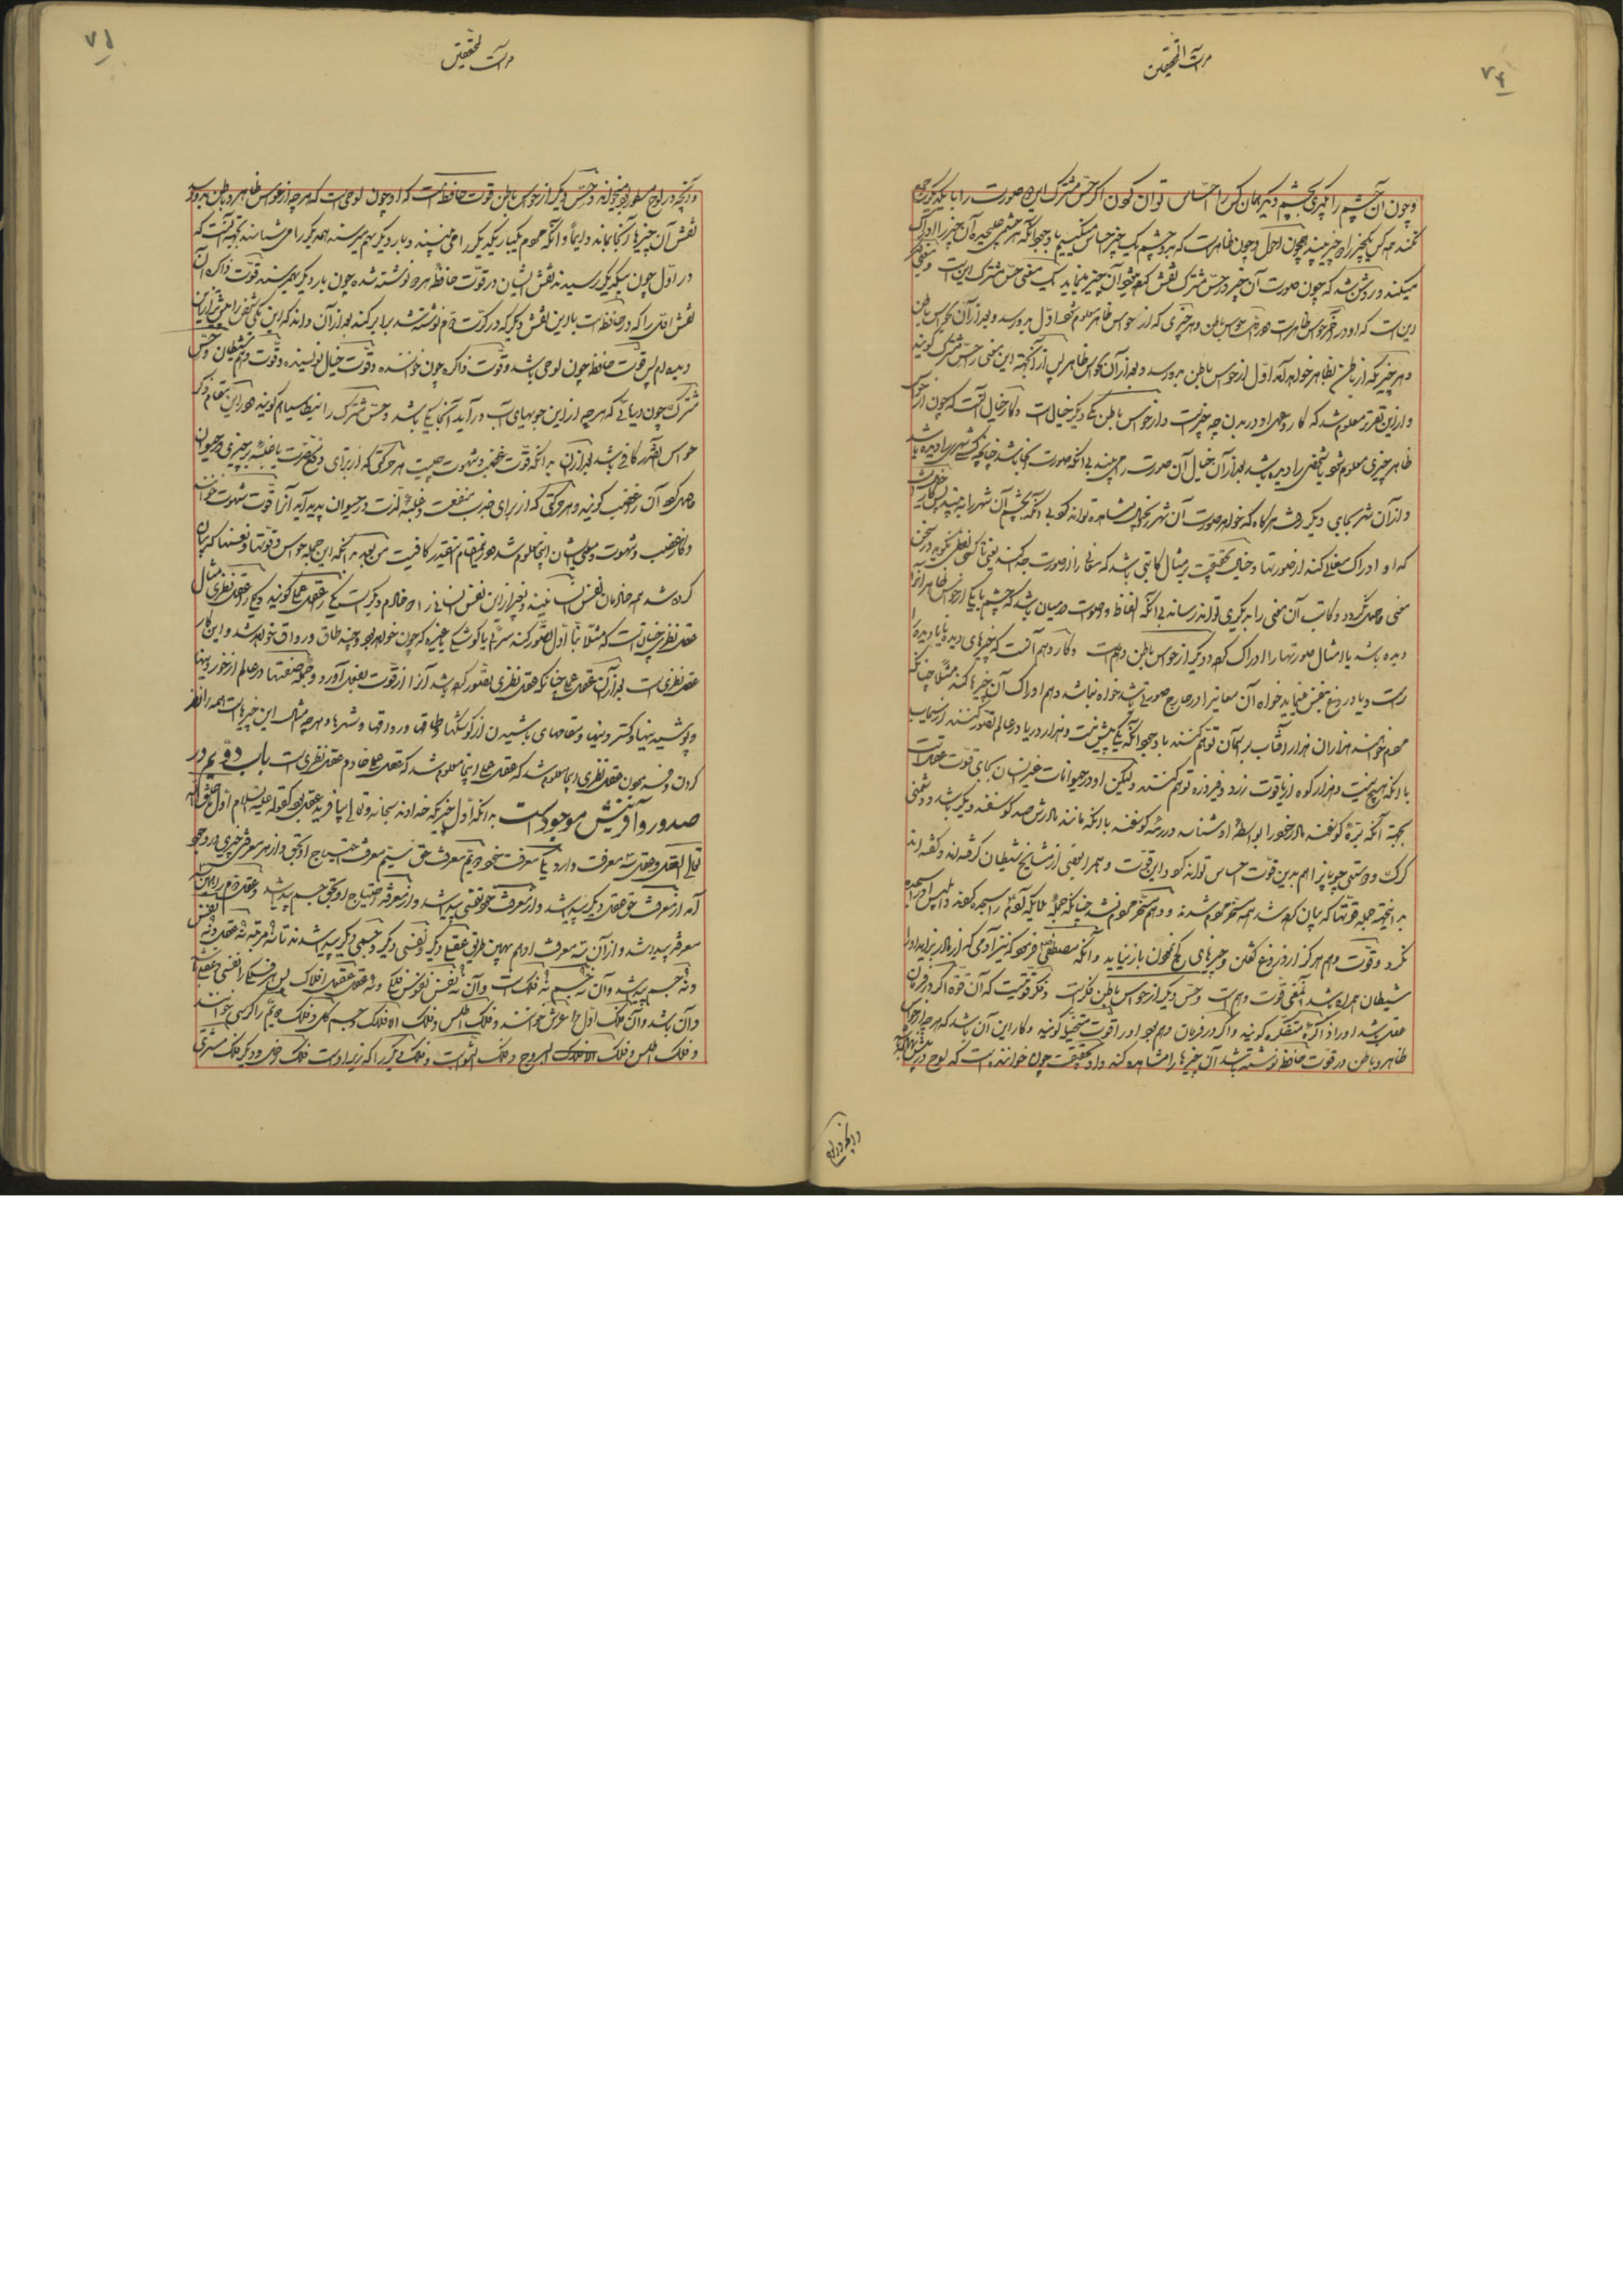 ۷۴
مرآت المحققین
و چون آن چشم را بگیری بچشم دیگر همان کس را احساس توان کردن اگر حس مشترک این دو صورت را با یکدیگر جمع
نکند هر کس یک چیز را دو چیز بیند همچون احول و چون ظاهرست که بدو چشم یک چیز احساس میکنیم با وجود آنکه هر چشم علیحده آن چیز را ادراک
میکند و روشن شد که چون صورت آن چیز در حس مشترک نقش کند هر دو آن چیز نماید یک معنی حس مشترک این است و معنی دیگر
این است که او در آخر حواس ظاهرست و در اول حواس باطن و هر چیزی که از حواس ظاهر معلوم شود اول بدو رسد و بعد از آن بحواس باطن
و هر چیز که از باطن بظاهر خواهد آمد اول از حواس باطن بدو رسد و بعد از آن بحواس ظاهر پس از آنجهة این معنی را حس مشترک گویند
و از این تقریر معلوم شد که کار و عمل او در بدن چه چیز است و از حواس باطن یکی دیگر خیال است و کار خیال آنست که چون از حواس
ظاهر چیزی معلوم شود یا شخصی را دیده باشد بعد از آن خیال آن صورت را می بیند بی آنکه صورت آنجا باشد چنانچه کسی شهری را دیده باشد
و از آن شهر بجای دیگر رفته هر گاه که خواهد صورت آن شهر بخیال مشاهده تواند کرد بی آنکه بچشم آن شهر را به بیند پس کار خیال آنست
که او ادراک معنی کند از صورتها و خیال بحقیقت بر مثال کاتبی باشد که معانی را از صورت جدا کند یعنی تا کسی لفظی نگوید در سخن
معنی حاصل نگردد و کاتب آن معنی را بدیگری تواند رساند بی آنکه الفاظ و صوت در میان باشد که چشم یا یکی از حواس ظاهر آنرا
دیده باشد یا امثال صورتها را ادراک کند و دیگر از حواس باطن وهم است و کار وهم آنست که چیزهای دیده یا نادیده را
راست و یا دروغ بنفس مینماید خواه آن معانی را در خارج صورتی باشد خواه نباشد و هم ادراک آن چیزها کند مثلا چنانکه
مردم خواسته هزاران هزار آفتاب بر آسمان توهم کنند با وجود آنکه یکی بیش نیست و هزار دریا در عالم تصور کنند از سیماب
با آنکه هیچ نیست و هزار کوه از یاقوت زرد و فیروزه توهم کنند ولیکن او در حیوانات غیر انسان بجای قوت عقل است
بجهة آنکه بره گوسفند مادر خود را بواسطه او شناسد در رمه گوسفند با آنکه مانند مادرش صد گوسفند دیگر باشد و دشمنی
گرگ و دوستی چوپان را هم بدین قوت احساس تواند کرد و این قوت وهم را بعضی از مشایخ شیطان گرفته اند و گفته اند
بدانجهة جمله قوتها که بیان کرده شد همه مسخر مردم شدند و وهم مسخر مردم نشد چنانکه جمله ملایکه آدم را سجده کردند و ابلیس او را سجده
نکرد و قوت وهم هرگز از دروغ گفتن و چیزهای کج نمودن باز نیاید و آنکه مصطفی فرمود که نیست آدمی که از مادر بزاید الا و با او
شیطان همراه باشد آنمعنی قوت وهم است و حس دیگر از حواس باطن فکر است و فکر قوتیست که آن قوه اگر در فرمان
عقل باشد او را ذاکره متفکره گویند و اگر در فرمان وهم بود او را قوت متخیله گویند و کار این آن باشد که هر چه از حواس
ظاهر و باطن در قوت حافظه نوشته باشد آن چیزها را مشاهده کند و او بحقیقت چون خواننده است که لوح در پیش نهاده باشد
و آنچه در لوح
۷۵
مرآت المحققین
و آنچه در لوح مسطور بود میخواند و حس دیگر از حواس باطن قوت حافظه است که او چون لوحی است که هر چه از حواس ظاهر و باطن بدو رسد
نقش آن چیزها آنجا بماند دایماً و آنکه مردم یکبار یکدیگر را می بینند و بار دیگر بهم میرسند همدیگر را می شناسند بجهة آنست که
در اول چون بیکدیگر رسیدند نقش ایشان در قوت حافظه هر دو نوشته شده چون بار دیگر بهم رسند قوت ذاکره آن
نقش اول را که در حافظه است با این نقش دیگر که در کرت دوم نوشته شد برابر کند بعد از آن داند که این یکی شخص را پیش از این
دیده ام پس قوت حافظه چون لوحی باشد و قوت ذاکره چون خواننده و قوت خیال نویسنده و قوت وهم شیطان و حس
مشترک چون دریائی که هر چه از این جویهای آب در آید آنجا یکی باشد و حس مشترک را بنطاسیا هم گویند و در این مقام ذکر
حواس اینقدر کافی باشد بعد از آن بدانکه قوت غضب و شهوت چیست هر حرکتی که از برای دفع مضرت یا غلبه بر چیزی در حیوان
حاصل شود آن را غضب گویند و هر حرکتی که از برای ضرب منفعت و غلبه لذت در حیوان پدید آید آنرا قوت شهوت خوانند
و کار غضب و شهوت و عمل ایشان اینجا معلوم شد و در این مقام اینقدر کافیست من بعد بدانکه این جمله حواس و قوتها و نفسها که بیان
کرده شد همه خادمان نفس انسانیند و بغیر از این نفس انسانی را دو خادم دیگرست یکی را عقل عملی گویند و یکی را عقل نظری مثال
عقل نظری چنانست که مثلا بنا اول تصور کند سرائی یا کوشکی بسازد که چون خواهد بود و چند طاق و رواق خواهد شد و این کار
عقل نظری است بعد از آن عقل عملی چنانکه عقل نظری تصور کرده باشد آنرا از قوت بفعل آورد و جمله صنعتها در عالم از خوردنیها
و پوشیدنیها و گستردنیها و مقامهای باشیدن از کوشکها و طاقها و رواقها و شهرها و هر چه مثال این چیزهاست همه را نظر
کردن و فرمودن عقل نظری اینجا معلوم شد که عقل عملی اینجا معلوم شد که عقل عملی خادم عقل نظری است باب دویم در
صدور و آفرینش موجودات بدانکه اول چیزیکه خداوند سبحانه و تعالی بیافرید عقل بود کقوله علیه السلام اول ما خلق الله
تعالی العقل و عقل سه معرفت دارد یکی معرفت خود دویم معرفت حق سیم معرفت احتیاج او بحق و از هر معرفتی چیزی در وجود
آمد از معرفت حق عقل دیگر پیدا شد و از معرفت خود نفسی پیدا شد و از معرفة احتیاج او بحق جسم پیدا شد و عقل دوم را همین سه
معرفت پیدا شد و از آن سه معرفت او هم بهمین طریق عقلی دیگر و نفسی دیگر و جسمی دیگر پیدا شدند تا نه مرتبه نه عقل و نه نفس
و نه جسم پیدا شد و آن نه جسم نه فلک است و آن نه نفس نفوس فلکی و نه عقل عقول افلاک پس هر فلک را نفسی و عقلی
در آن باشد و آن فلک اول را عرش خوانند و فلک اطلس و فلک الافلاک و جسم کل و فلک دویم را کرسی خوانند
و فلک اطلس و فلک الافلاک البروج و فلک الثوابت و فلک دیگر را که زیر اوست فلک زحل و دیگر فلک مشتری